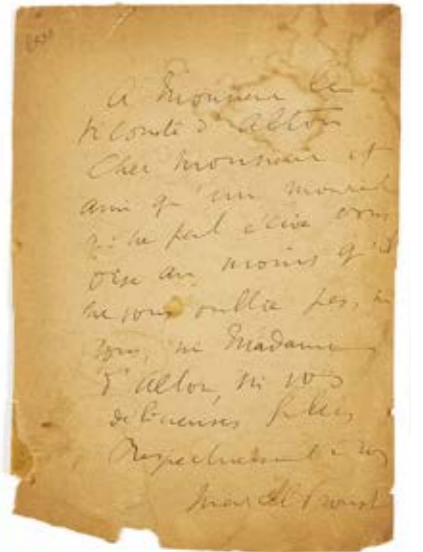 A Monsieur le
Vicomte d'Alton
Cher Monsieur et
ami qu'un mourant
qui ne peut écrire vous
dise au moins qu'il
ne vous oublie pas, ni
vous, ni Madame
d'Alton, ni vos
délicieuses filles
Respectueusement à vos
Marcel Proust